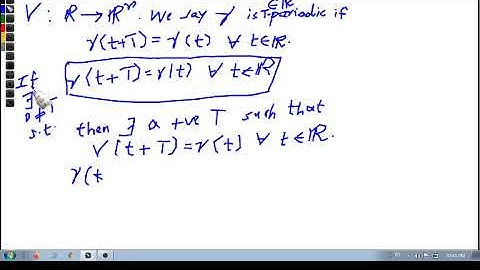 γ : ℝ → ℝⁿ. We say γ is T-periodic if
∈ℝ
γ(t+T) = γ(t) ∀ t∈ℝ.
If ∃ T s.t. γ(t+T) = γ(t) ∀ t∈ℝ
then ∃ a +ve T such that
γ(t+T) = γ(t) ∀ t∈ℝ.
γ(t